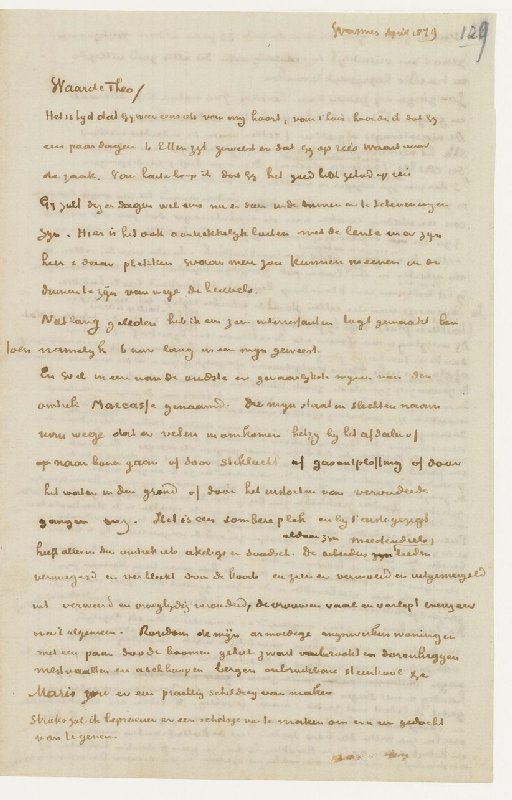 Wasmes April 1879
129
Waarde Theo,
Het is tyd dat gy weer eens iets van my hoort, van t'huis hoorde ik dat gy
een paar dagen te Etten zyt geweest en dat gy op reis waart voor
de zaak. Van harte hoop ik dat gy het goed hebt gehad op reis
Gy zult dezer dagen wel eens nu en dan in de duinen en te Scheveningen
zyn. Hier is het ook aantrekkelyk buiten met de lente er zyn
hier & daar plekken waar men zou kunnen meenen in de
duinen te zijn van wege de heuvels.
Niet lang geleden heb ik een zeer interessanten togt gemaakt ben
toen namelyk 6 uur lang in een myn geweest.
En wel in een van de oudste en gevaarlykste mynen van den
omtrek Marcasse genaamd. Die myn staat in slechten naam
van wege dat er velen in omkomen hetzy by het afdalen of
op naar boven gaan of door stiklucht of gasontploffing of door
het water in den grond of door het instorten van verouderde
gangen enz. Het is een sombere plek en by t' eerste gezigt
heeft alles in dien omtrek iets akeligs en doodsch. De arbeiders aldaar zyn meestendeels lieden
vermagerd en verbleekt door de koorts en zien er vermoeid en uitgemergeld
uit verweerd en vroegtydig verouderd, de vrouwen vaal en verlept
over't algemeen. Rondom de mijn armoedige mynwerkers woningen
met een paar doode boomen geheel zwart verbrookt en doornheggen
mestvaalten en aschhoopen bergen onbruikbare steenkool &c
Maris zou er een prachtig schildery van maken
Straks zal ik beproeven er een schetsje van te maken om er u een gedacht
van te geven.